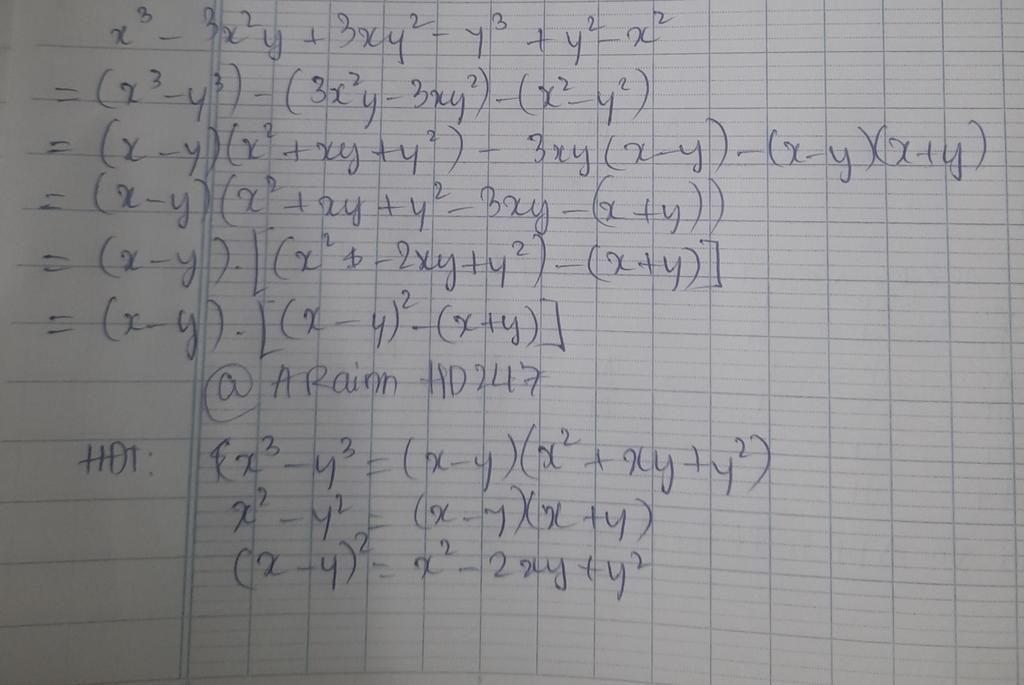 x³ - 3x²y + 3xy² - y³ + y² - x²
= (x³ - y³) - (3x²y - 3xy²) - (x² - y²)
= (x - y)(x² + xy + y²) - 3xy(x - y) - (x - y)(x + y)
= (x - y)(x² + xy + y² - 3xy - (x + y))
= (x - y).[(x² - 2xy + y²) - (x + y)]
= (x - y).[(x - y)² - (x + y)]
@ ARainn HD247
HĐT: x³ - y³ = (x - y)(x² + xy + y²)
x² - y² = (x - y)(x + y)
(x - y)² = x² - 2xy + y²